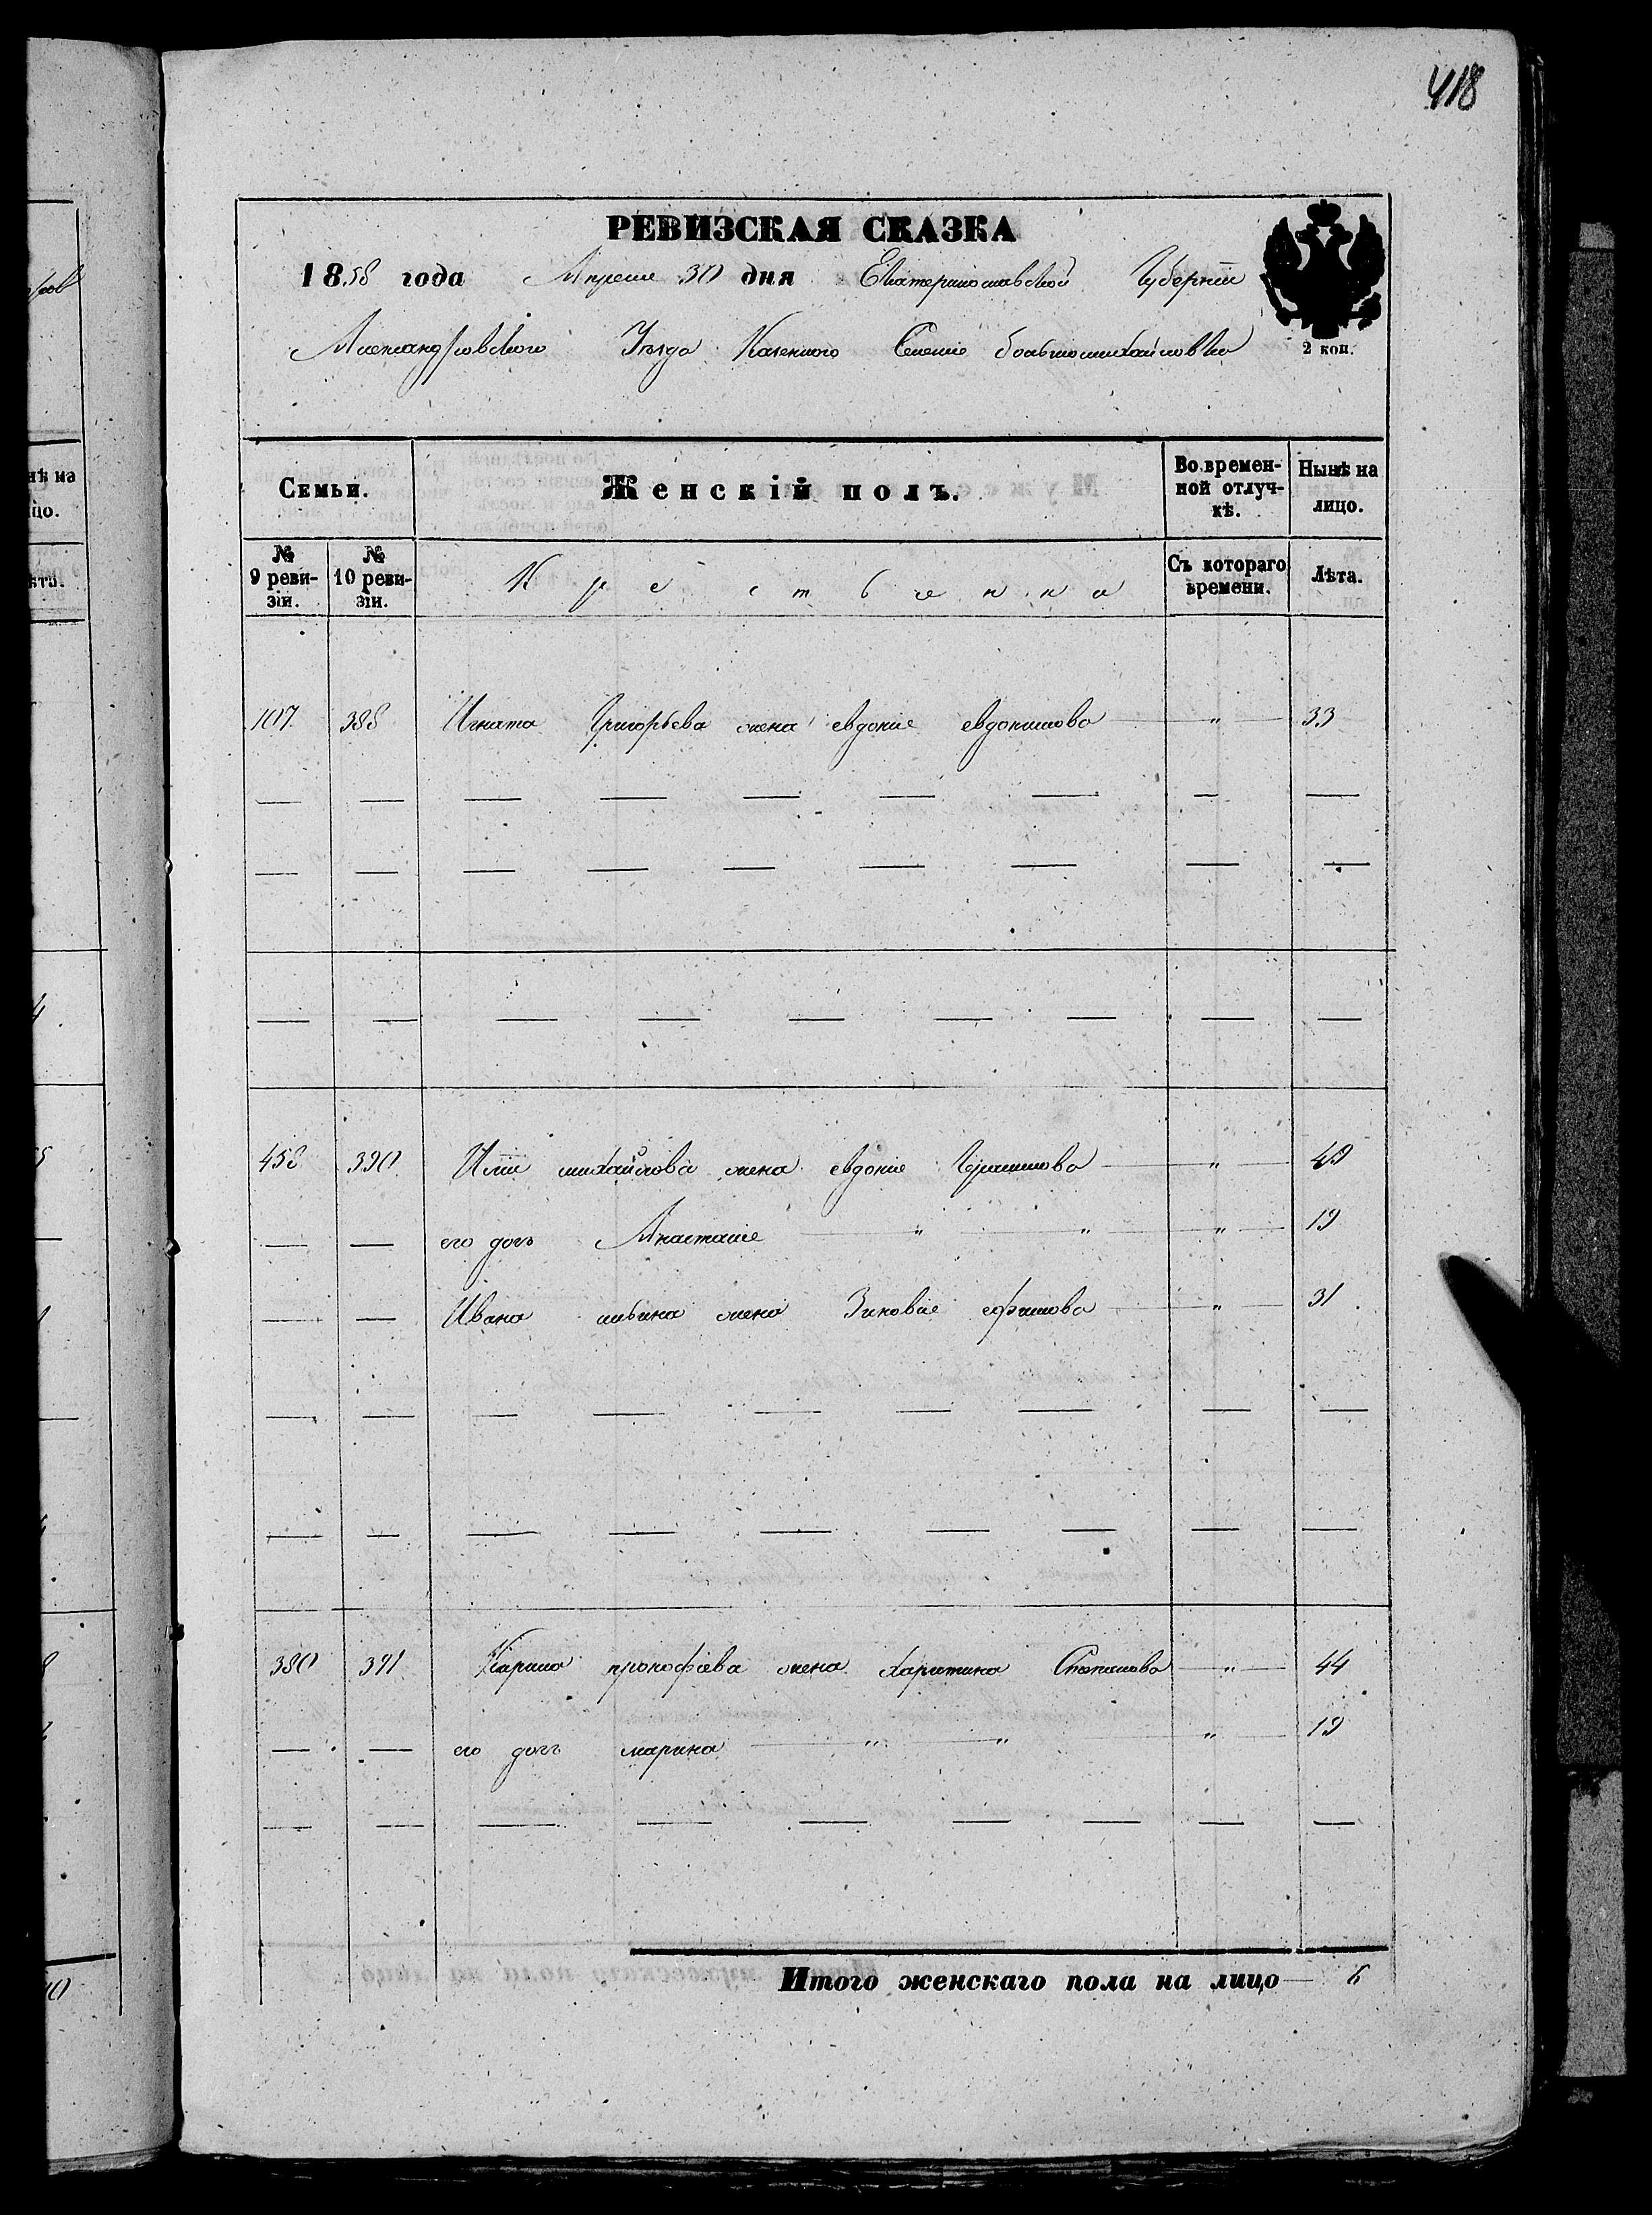 418
РЕВИЗСКАЯ СКАЗКА
1858 года Апреля 30 дня Екатеринославской Губерніи
Александровского Уезда Казенного Селенія большомихайловки
2 коп.
Семьи. Женскій полъ. Во времен-ной отлуч-кѣ. Нынѣ на лицо.
№ 9 реви-зіи. № 10 реви-зіи. Крестьянки Съ котораго времени. Лѣта.
107 388 Игната Григорьева жена евдокия евдокимова — " — 33
458 390 Ильи михайлова жена евдокия — " — 49
— — его дочь Анастасия — " — " — " — 19
— — Ивана жена Зиновия ефимова — " — 31
380 391 Карпа прокофіева жена харитина Степанова — " — 44
— — его дочь марина — " — " — " — 19
Итого женскаго пола на лицо — 6